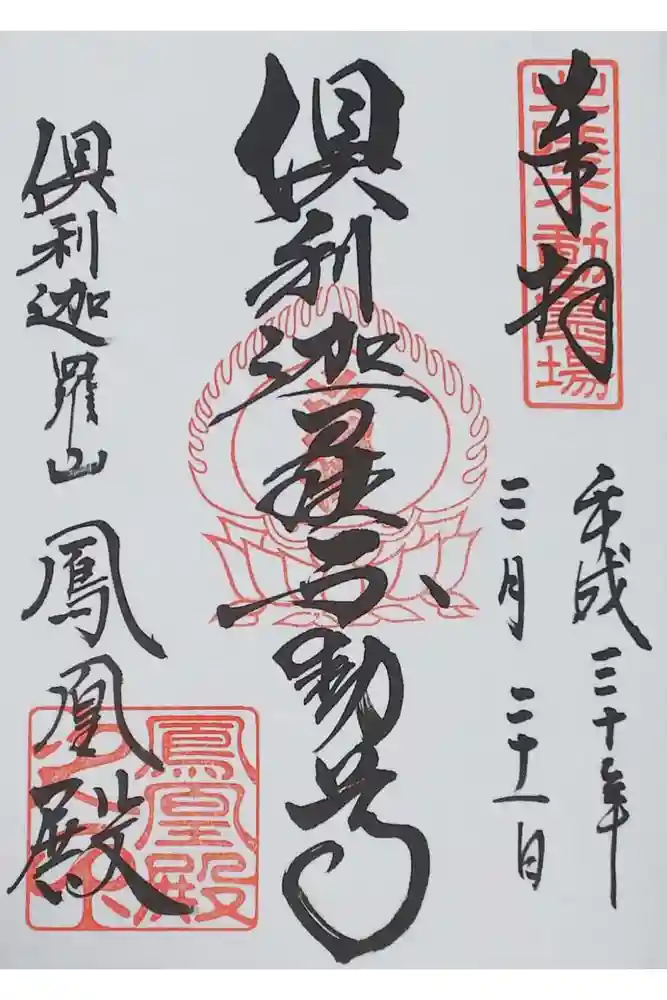 奉拝
北陸不動霊場
平成三十年
三月二十一日
倶利迦羅不動尊
倶利迦羅山 鳳凰殿
鳳凰殿